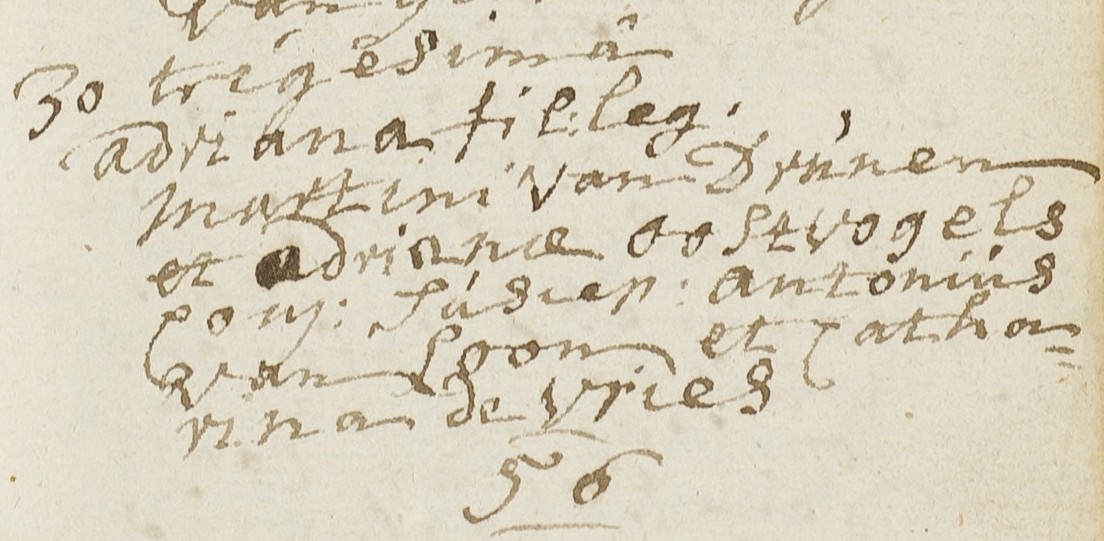 30 trigesima
adriana fil: leg.
martini van Drunen
et adrianæ oostvogels
conj: Suscep: antonius
van Loon et Catha=
rina de vries
56